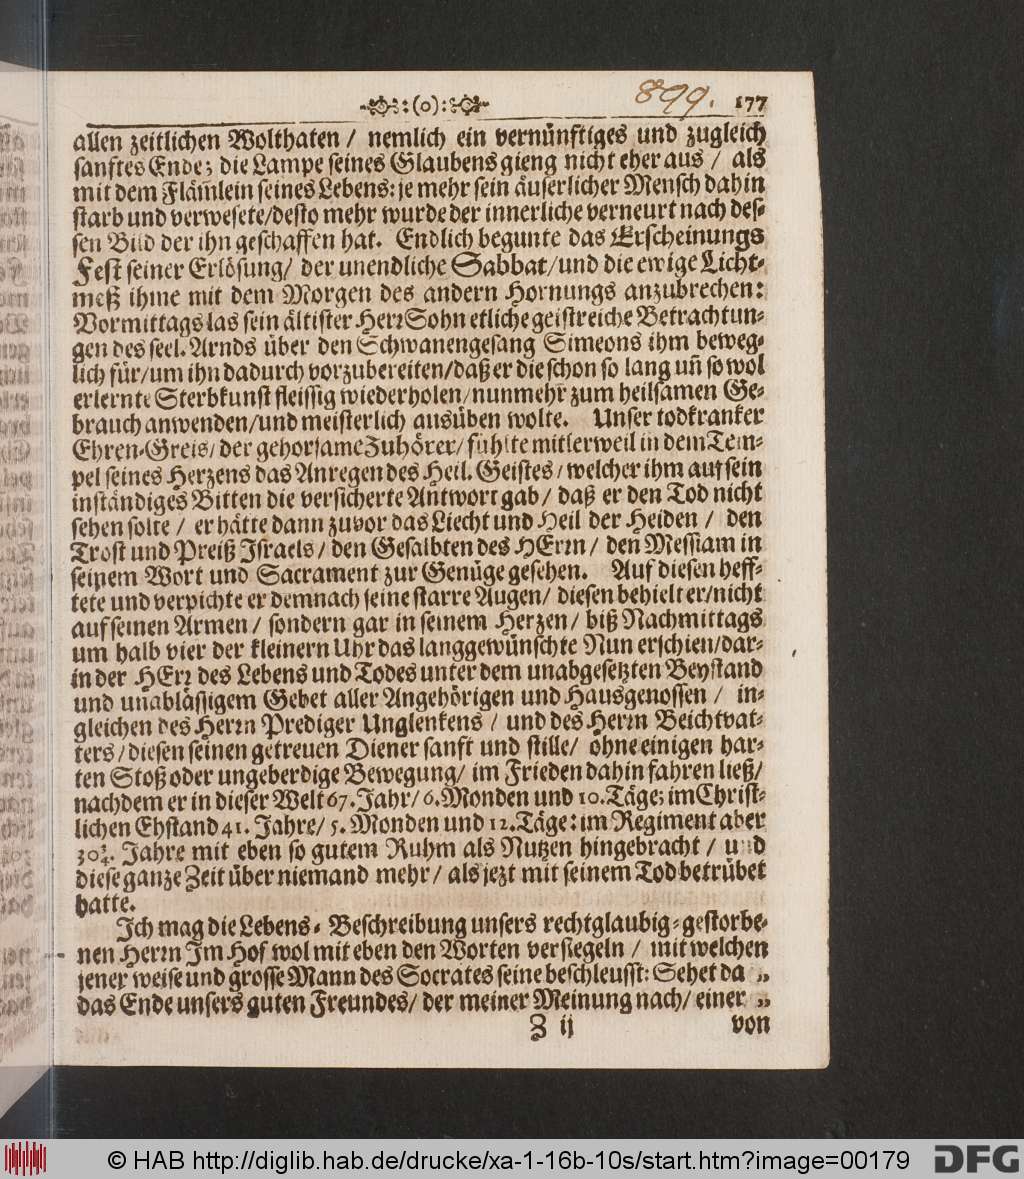 :(o): 899. 177
allen zeitlichen Wolthaten / nemlich ein vernünftiges und zugleich
sanftes Ende; die Lampe seines Glaubens gieng nicht eher aus / als
mit dem Flämlein seines Lebens: je mehr sein äuserlicher Mensch dahin
starb und verwesete / desto mehr wurde der innerliche verneurt nach des-
sen Bild der ihn geschaffen hat. Endlich begunte das Erscheinungs
Fest seiner Erlösung / der unendliche Sabbat / und die ewige Licht-
meß ihme mit dem Morgen des andern Hornungs anzubrechen:
Vormittags las sein ältister Herr Sohn etliche geistreiche Betrachtun-
gen des seel. Arnds über den Schwanengesang Simeons ihm beweg-
lich für / um ihn dadurch vorzubereiten / daß er die schon so lang uñ so wol
erlernte Sterbkunst fleissig wiederholen / nunmehr zum heilsamen Ge-
brauch anwenden / und meisterlich ausüben wolte. Unser todkranker
Ehren-Greis / der gehorsame Zuhörer / fühlte mitlerweil in dem Tem-
pel seines Herzens das Anregen des Heil. Geistes / welcher ihm auf sein
inständiges Bitten die versicherte Antwort gab / daß er den Tod nicht
sehen solte / er hätte dann zuvor das Liecht und Heil der Heiden / den
Trost und Preiß Israels / den Gesalbten des HErrn / den Messiam in
seinem Wort und Sacrament zur Genüge gesehen. Auf diesen heff-
tete und verpichte er demnach seine starre Augen / diesen behielt er / nicht
auf seinen Armen / sondern gar in seinem Herzen / biß Nachmittags
um halb vier der kleinern Uhr das langgewünschte Nun erschien / dar-
in der HErr des Lebens und Todes unter dem unabgesetzten Beystand
und unablässigem Gebet aller Angehörigen und Hausgenossen / in-
gleichen des Herrn Prediger Unglenkens / und des Herrn Beichtvat-
ters / diesen seinen getreuen Diener sanft und stille / ohne einigen har-
ten Stoß oder ungeberdige Bewegung / im Frieden dahin fahren ließ /
nachdem er in dieser Welt 67. Jahr / 6. Monden und 10. Täge; im Christ-
lichen Ehstand 41. Jahre / 5. Monden und 12. Täge: im Regiment aber
30¾. Jahre mit eben so gutem Ruhm als Nutzen hingebracht / und
diese ganze Zeit über niemand mehr / als jezt mit seinem Tod betrübet
hatte.
Ich mag die Lebens-Beschreibung unsers rechtglaubig-gestorbe-
nen Herrn Im Hof wol mit eben den Worten versiegeln / mit welchen
jener weise und grosse Mann des Socrates seine beschleusst: Sehet da „
das Ende unsers guten Freundes / der meiner Meinung nach / einer „
Z ij von
© HAB http://diglib.hab.de/drucke/xa-1-16b-10s/start.htm?image=00179 DFG